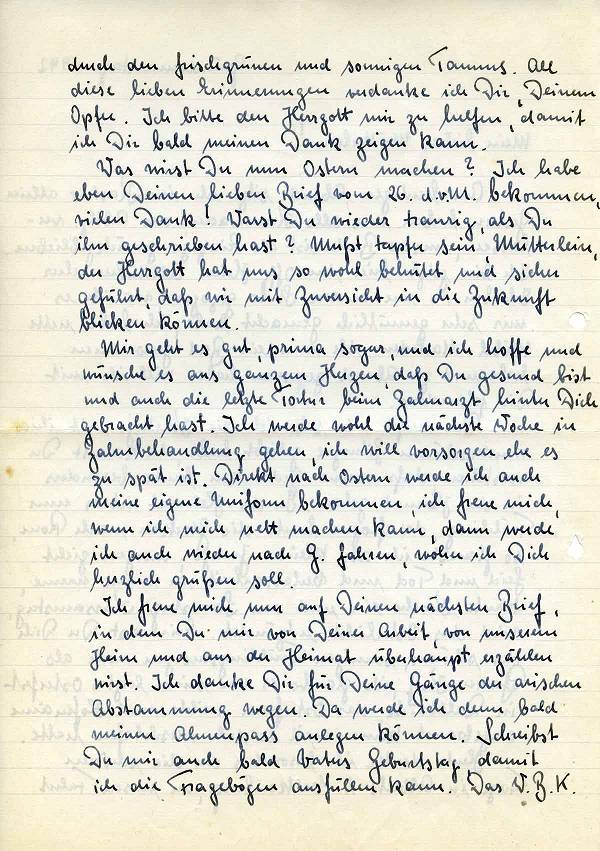 durch den frischgrünen und sonnigen Taunus. All
diese lieben Erinnerungen verdanke ich Dir, Deinem
Opfer. Ich bitte den Herrgott mir zu helfen, damit
ich Dir bald meinen Dank zeigen kann.
Was wirst Du nun Ostern machen? Ich habe
eben Deinen lieben Brief vom 26. d.v.M. bekommen,
vielen Dank! Warst Du wieder traurig, als Du
ihn geschrieben hast? Mußt tapfer sein, Mütterlein,
der Herrgott hat uns so wohl behütet und sicher
geführt, daß wir mit Zuversicht in die Zukunft
blicken können.
Mir geht es gut, prima sogar und ich hoffe und
wünsche es aus ganzem Herzen, daß Du gesund bist
und auch die letzte Tortur beim Zahnarzt hinter Dich
gebracht hast. Ich werde wohl die nächste Woche in
Zahnbehandlung gehen, ich will vorsorgen ehe es
zu spät ist. Direkt nach Ostern werde ich auch
meine eigene Uniform bekommen, ich freue mich,
wenn ich mich nett machen kann, dann werde
ich auch wieder nach G. fahren, woher ich Dich
herzlich grüßen soll.
Ich freue mich nun auf Deinen nächsten Brief,
in dem Du mir von Deiner Arbeit, von unserem
Heim und aus der Heimat überhaupt erzählen
wirst. Ich danke Dir für Deine Gänge der arischen
Abstammung wegen. Da werde ich denn bald
meinen Ahnenpass anlegen können. Schreibst
Du mir auch bald Vaters Geburtstag, damit
ich die Fragebögen ausfüllen kann. Das W.B.K.